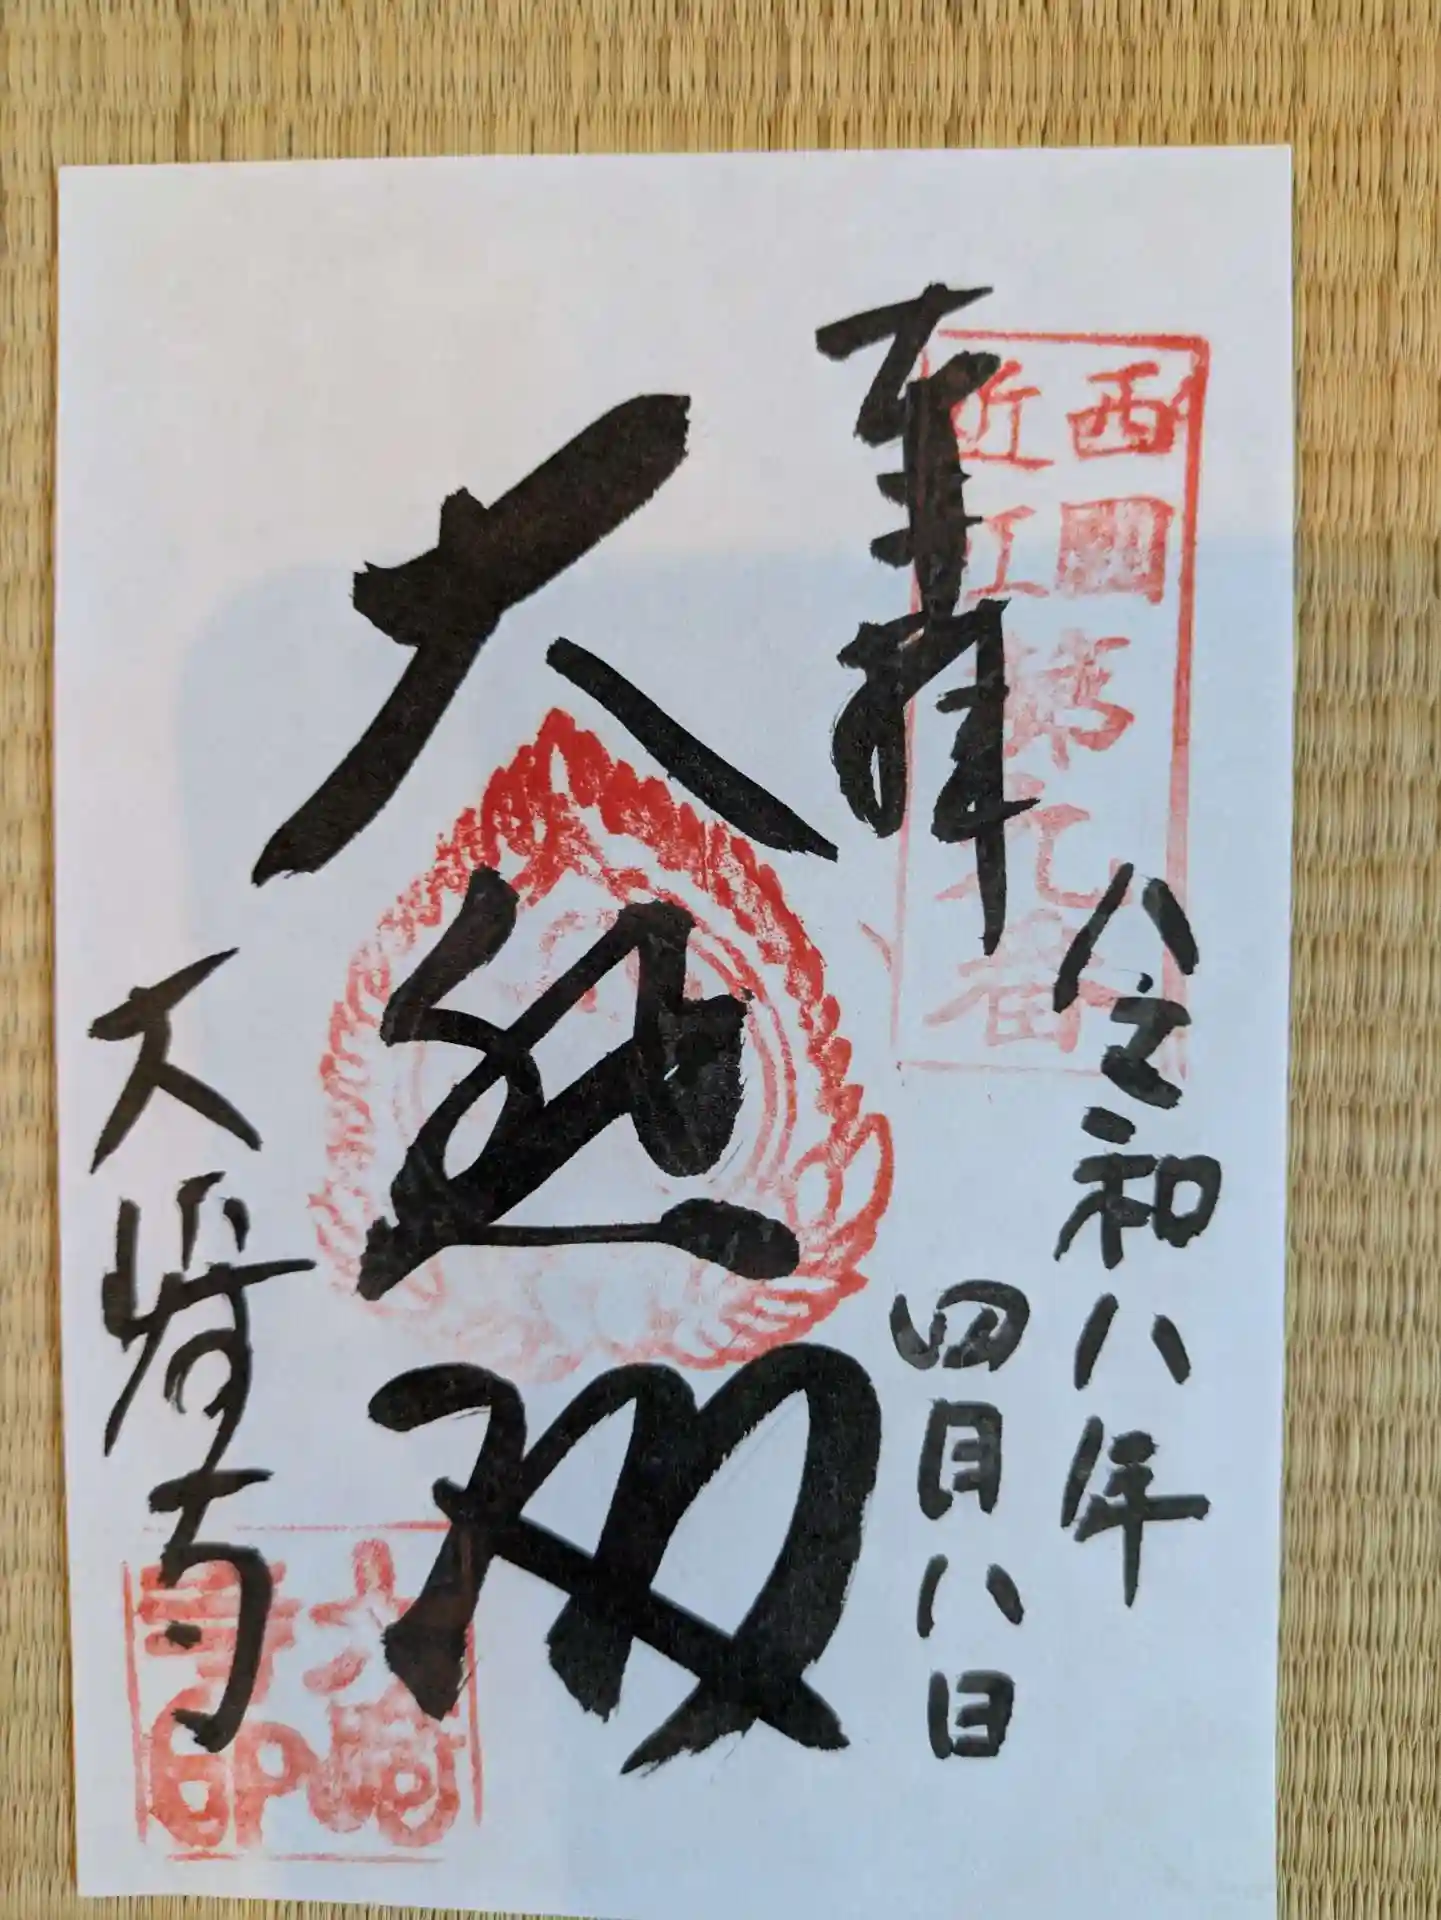 奉拝
西國
近江
第九番
令和八年
四月八日
大悲殿
大崎寺
大崎
寺印